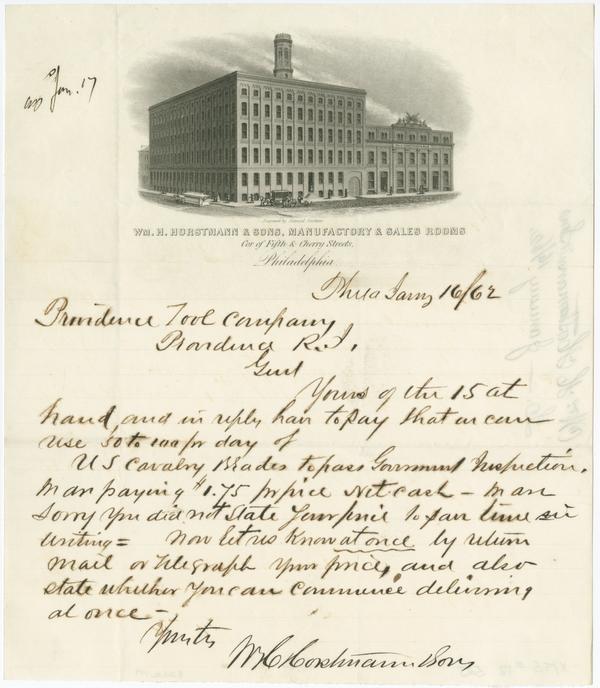 an Jan. 17
WM. H. HORSTMANN & SONS, MANUFACTORY & SALES ROOMS
Cor of Fifth & Cherry Streets,
Philadelphia
Phila Jany 16/62
Providence Tool Company
Providence R.I.
Gent
Yours of the 15 at
hand, and in reply hav to say that we can
use 50 to 100 pr day of
US Cavalry Blades to pass Government Inspection.
We are paying $1.75 pr piece Net cash – We are
sorry you did not state your price to save time in
writing = Now let us know at once by return
mail or telegraph your price, and also
state whether you can commence delivering
at once –
Yours try
W H Horstmann & Sons